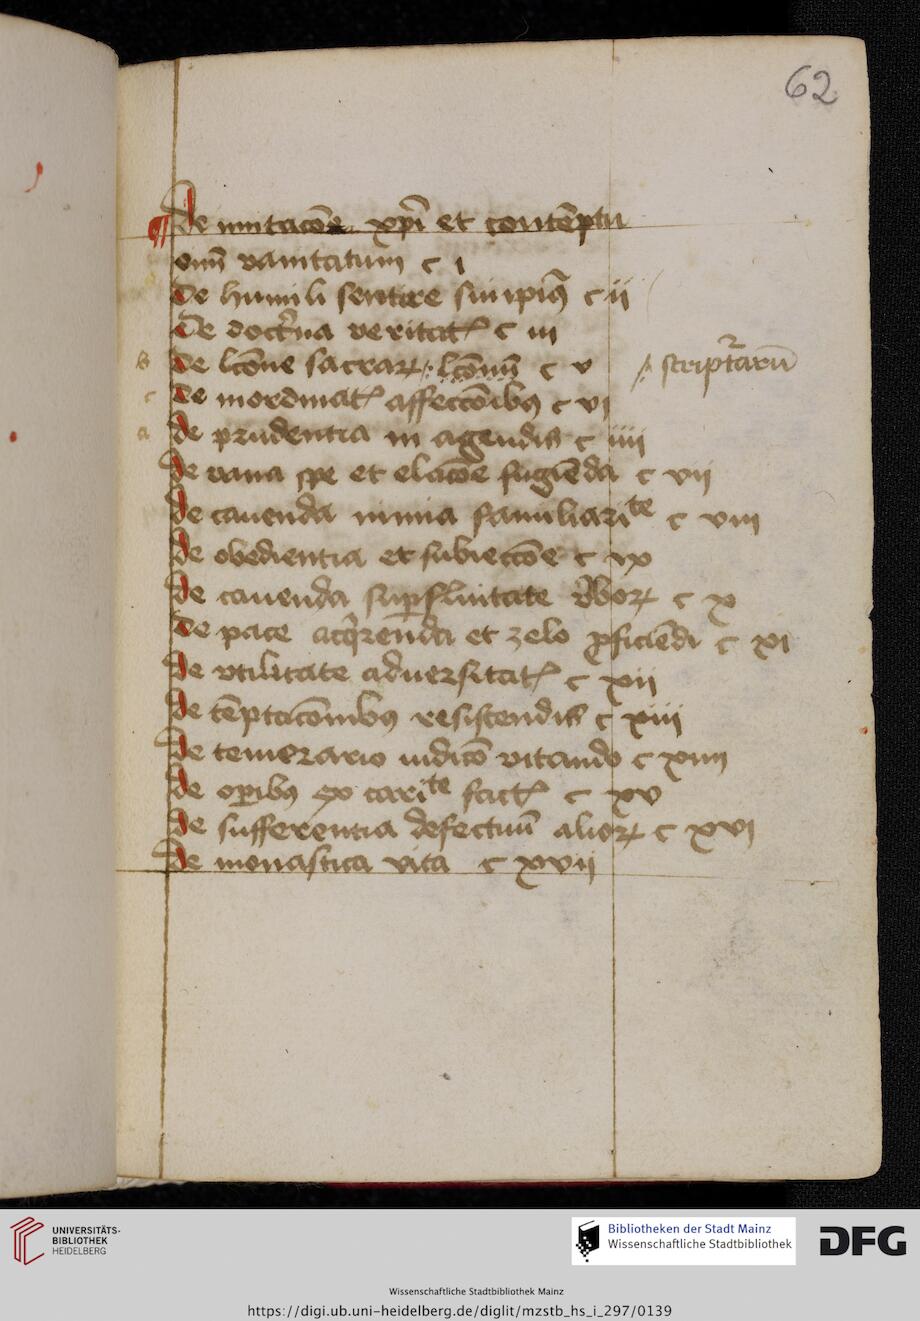 62
de imitacōe xp̄i et contēptu
oīm vanitatum c i
de humili sentire sui ipīꝰ c ii
De doctⁱna veritatꝭ c iii
b de lcōne sacraꝝ lcōnū c v scriptᵃrarū
c de inordinatꝭ affeccōibꝰ c vi
a de prudentia in agendis c iiii
de vana spe et elacōe fugiēda c vii
de cauenda nimia familiariᵗᵉ c viii
de obedientia et subieccōe c ix
de cauenda suꝑfluitate v̄boꝝ c x
de pace acqⁱrenda et zelo ꝓficiēdi c xi
de vtilitate aduersitatꝭ c xii
de tēptacōnibꝰ resistendis c xiii
de temerario iudicō vitando c xiiii
de oꝑibꝰ ex cariᵗᵉ factꝭ c xv
de sufferentia defectuū alioꝝ c xvi
de monastica vita c xvii
UNIVERSITÄTS-
BIBLIOTHEK
HEIDELBERG
Bibliotheken der Stadt Mainz
Wissenschaftliche Stadtbibliothek
DFG
Wissenschaftliche Stadtbibliothek Mainz
https://digi.ub.uni-heidelberg.de/diglit/mzstb_hs_i_297/0139